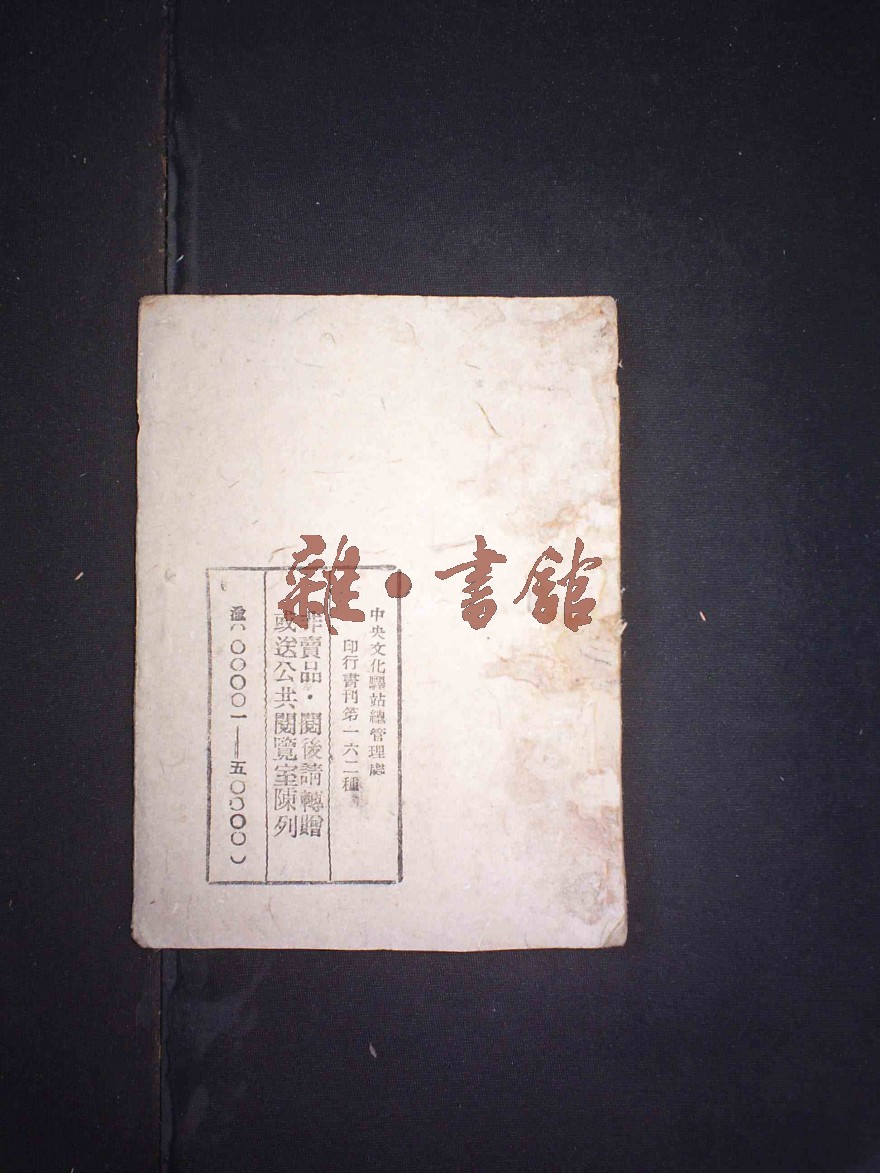 中央文化驛站總管理處
印行書刊第一六二種
非賣品·閱後請轉贈
或送公共閱覽室陳列
渝(〇〇〇〇一——五〇〇〇〇)
雜·書館